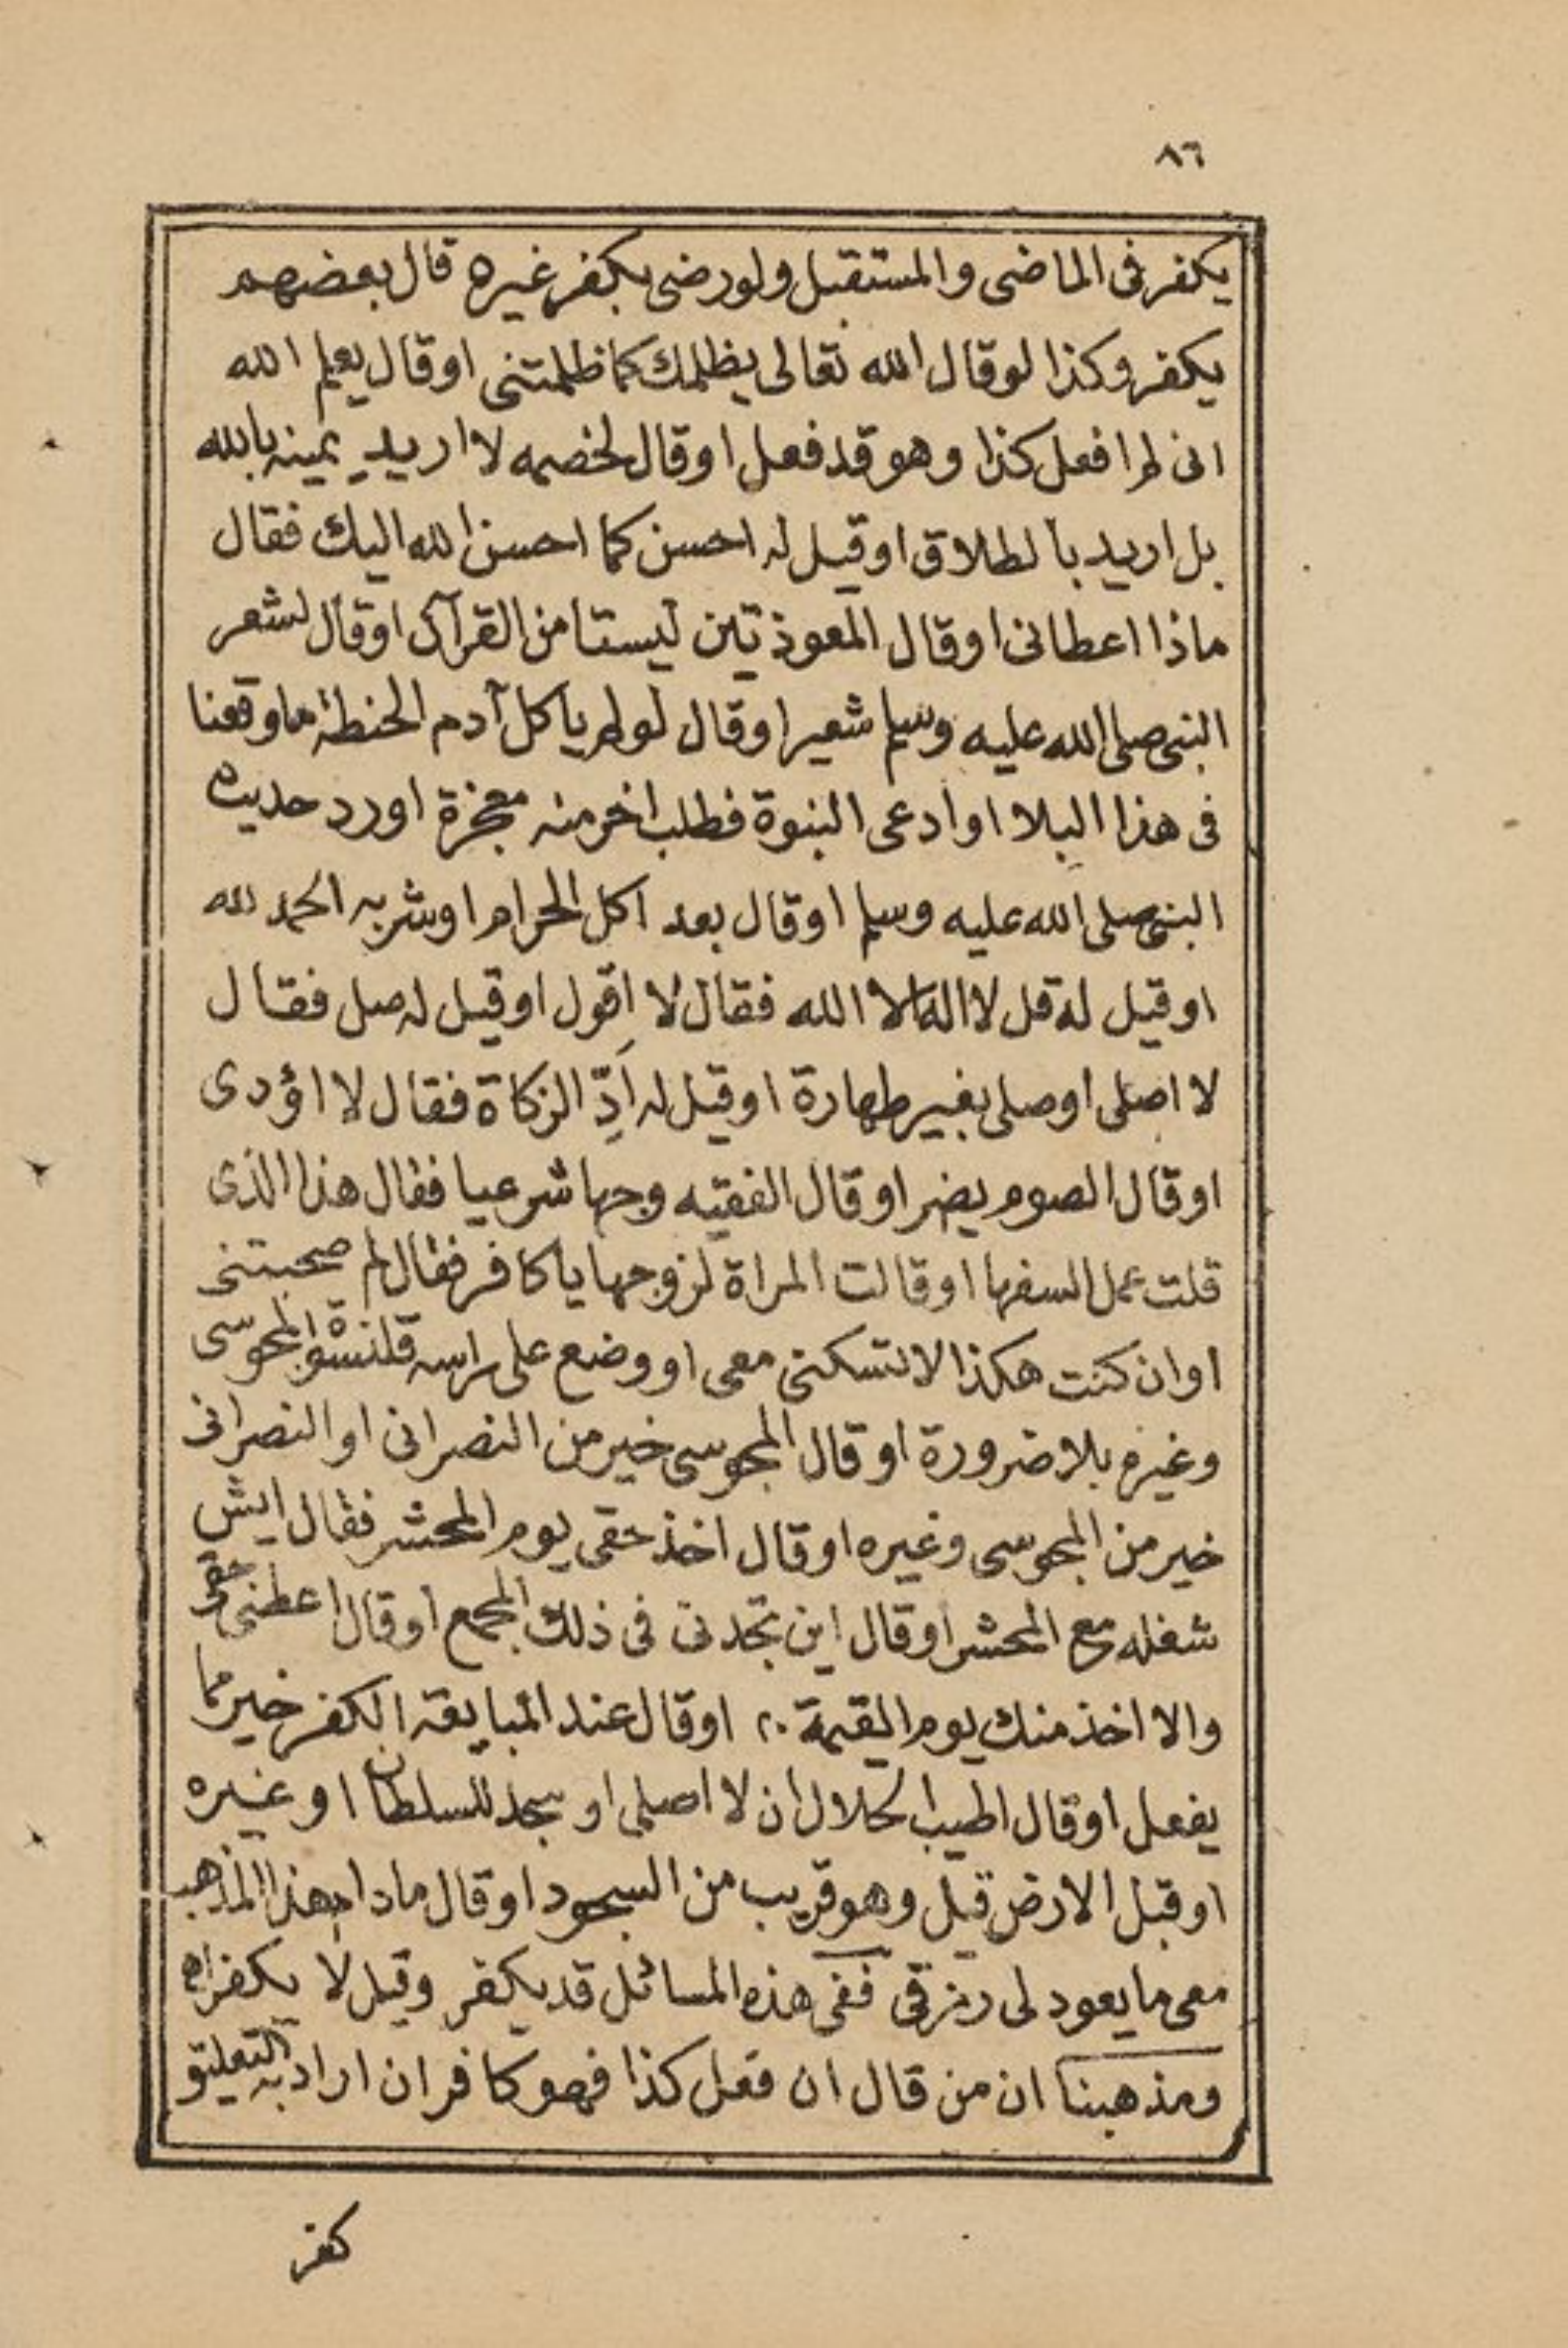 ٨٦
يكفر فى الماضى والمستقبل ولو رضى بكفر غيره قال بعضهم
يكفر وكذا لو قال الله تعالى يظلمك كما ظلمتنى او قال يعلم الله
انى لم افعل كذا وهو قد فعل او قال لخصمه لا اريد يمينه بالله
بل اريد بالطلاق او قيل له احسن كما احسن الله اليك فقال
ماذا اعطانى او قال المعوذتين ليستا من القرآن او قال لشعر
النبى صلى الله عليه وسلم شعيرا وقال لو لم ياكل آدم الحنطة ما وقعنا
فى هذا البلا او ادعى النبوة فطلب اخر منه معجزة او رد حديث
النبى صلى الله عليه وسلم او قال بعد اكل الحرام او شربه الحمد لله
او قيل له قل لا اله الا الله فقال لا اقول او قيل له صل فقال
لا اصلى او صلى بغير طهارة او قيل له اَدِّ الزكاة فقال لا اؤدى
او قال الصوم يضر او قال الفقيه وجها شرعيا فقال هذا الذى
قلت عمل السفها او قالت المراة لزوجها يا كافر فقال لم صحبتنى
او ان كنت هكذا لا تسكنى معى او وضع على راسه قلنسوة المجوسى
وغيره بلا ضرورة او قال المجوسى خير من النصرانى او النصرانى
خير من المجوسى وغيره او قال اخذ حقى يوم المحشر فقال ايش
شغله مع المحشر او قال اين تجدنى فى ذلك المجمع او قال اعطنى حقى
والا اخذ منك يوم القيمة ٢٠ او قال عند المبايعة الكفر خير مما
يفعل او قال اطيب الحلال ان لا اصلى او سجد للسلطان او غيره
او قبل الارض قيل وهو قريب من السجود او قال مادام هذا المذهب
معى ما يعود لى رزقى ففى هذه المسائل قد يكفر وقيل لا يكفر اه
ومذهبنا ان من قال ان فعل كذا فهو كافر ان اراد به التعليق
كفر